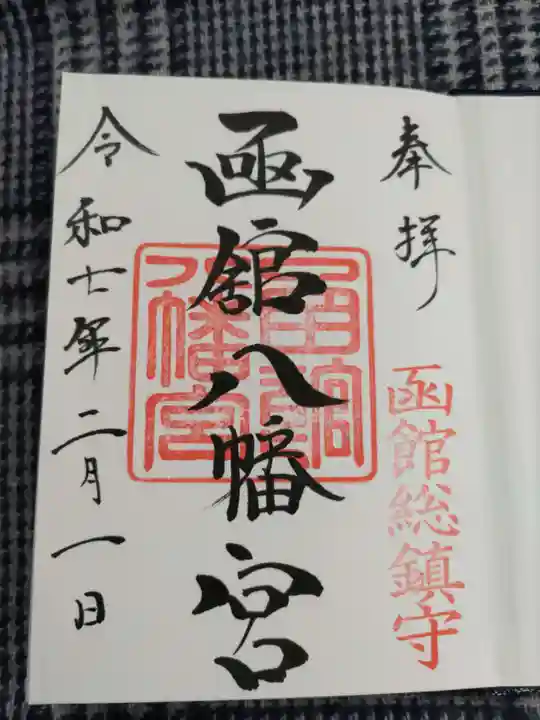 奉拝
函館総鎮守
函館八幡宮
函館八幡宮
令和七年二月一日